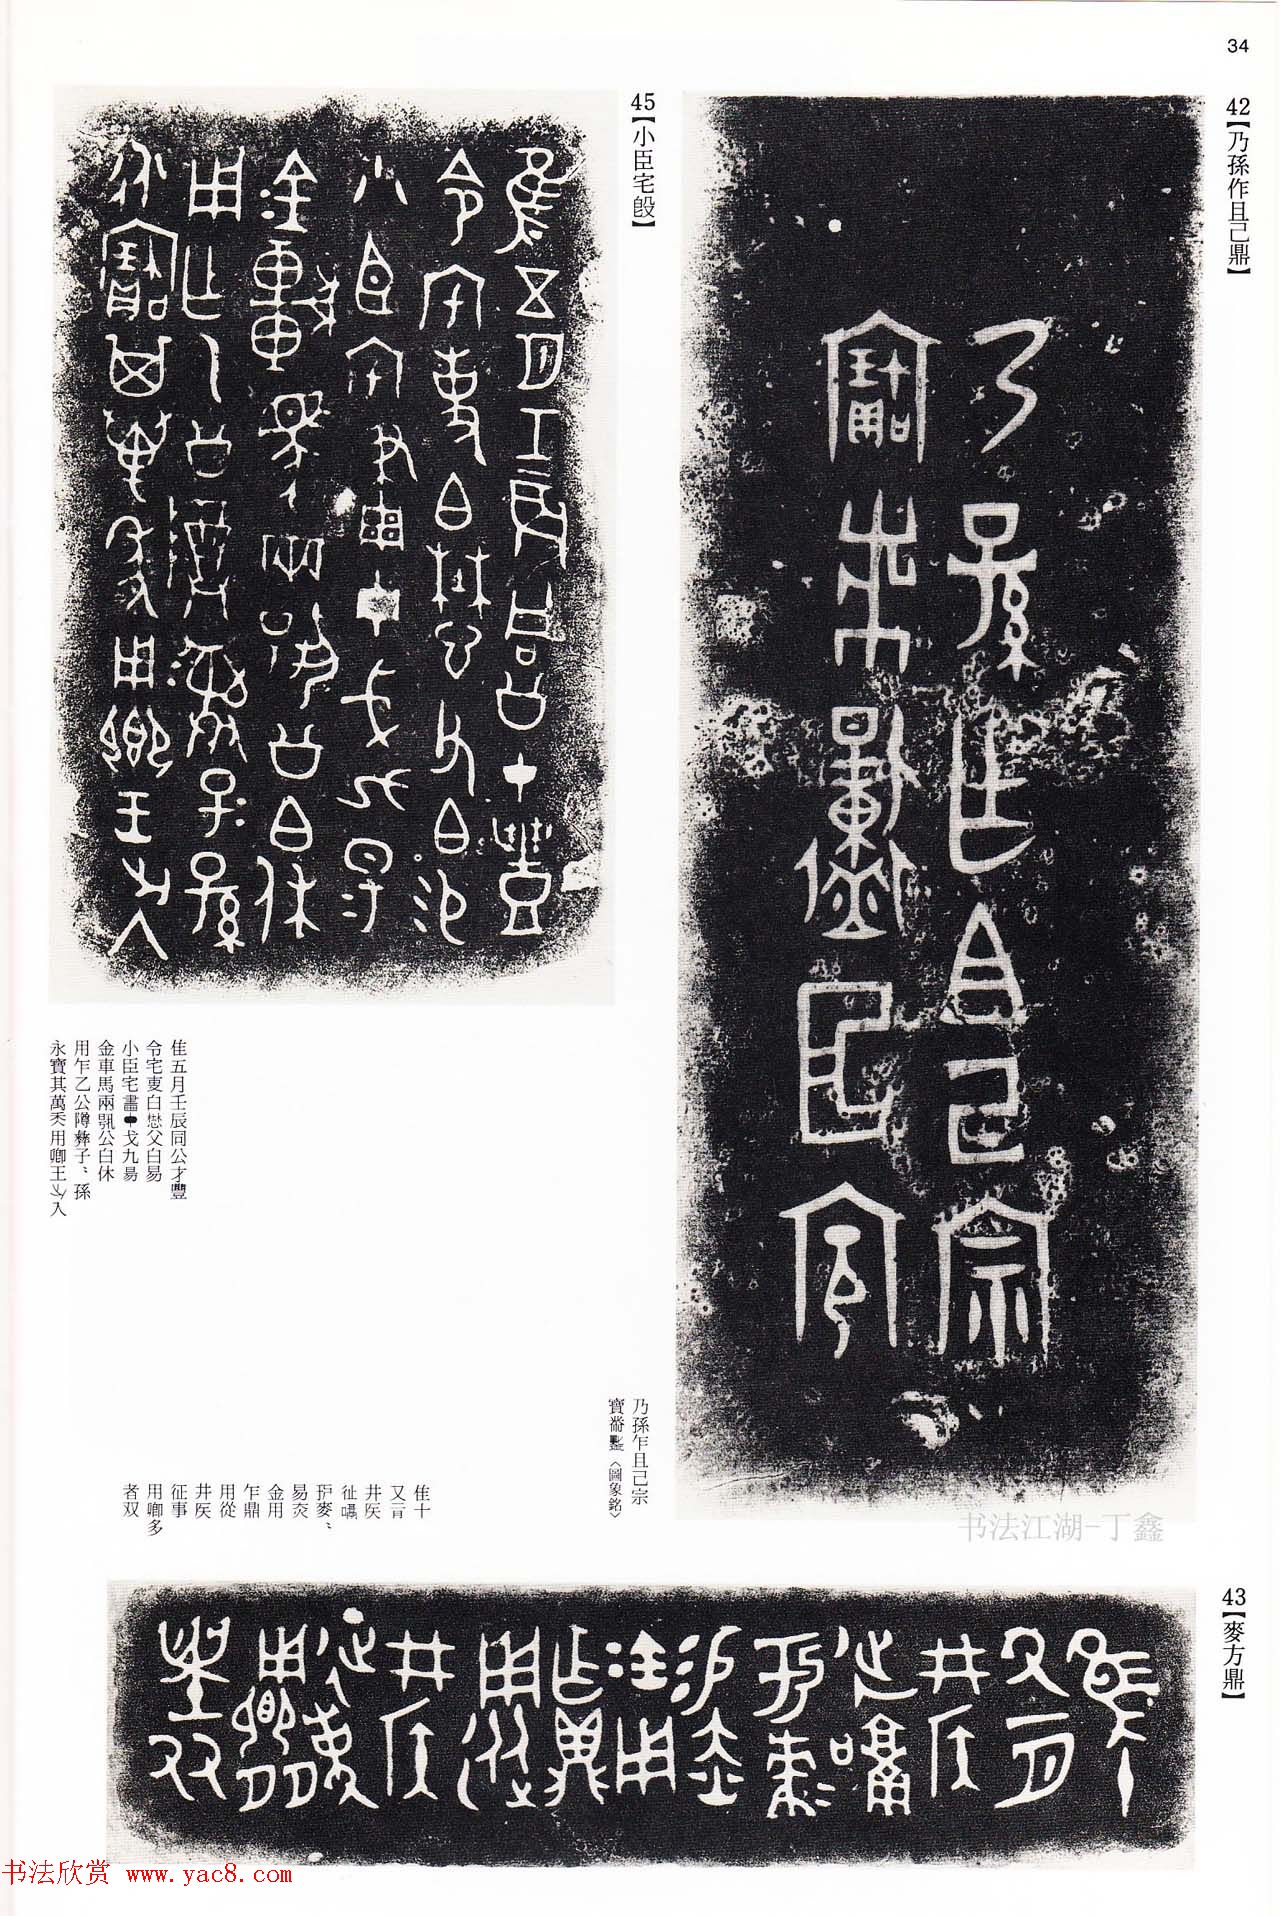 34
42【乃孫作且己鼎】
乃孫乍且己宗
寶黹〈圖象銘〉
45【小臣宅𣪘】
隹五月壬辰同公才豐
令宅吏白懋父白易
小臣宅畫戈九易
金車馬兩公白休
用乍乙公障彝子〻孫
永寶其萬年用鄉王入
43【麥方鼎】
隹十
又一月
井医
征囑
麥〻
易赤
金用
乍鼎
用從
井医
征事
用鄉多
者双
书法江湖-丁鑫
书法欣赏 www.yac8.com